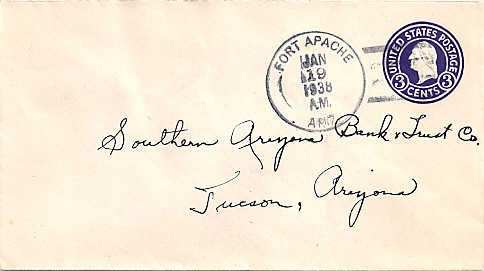 FORT APACHE
JAN
19
1938
A.M.
ARIZ
UNITED STATES POSTAGE
3 CENTS 3
Southern Arizona Bank & Trust Co.
Tucson, Arizona